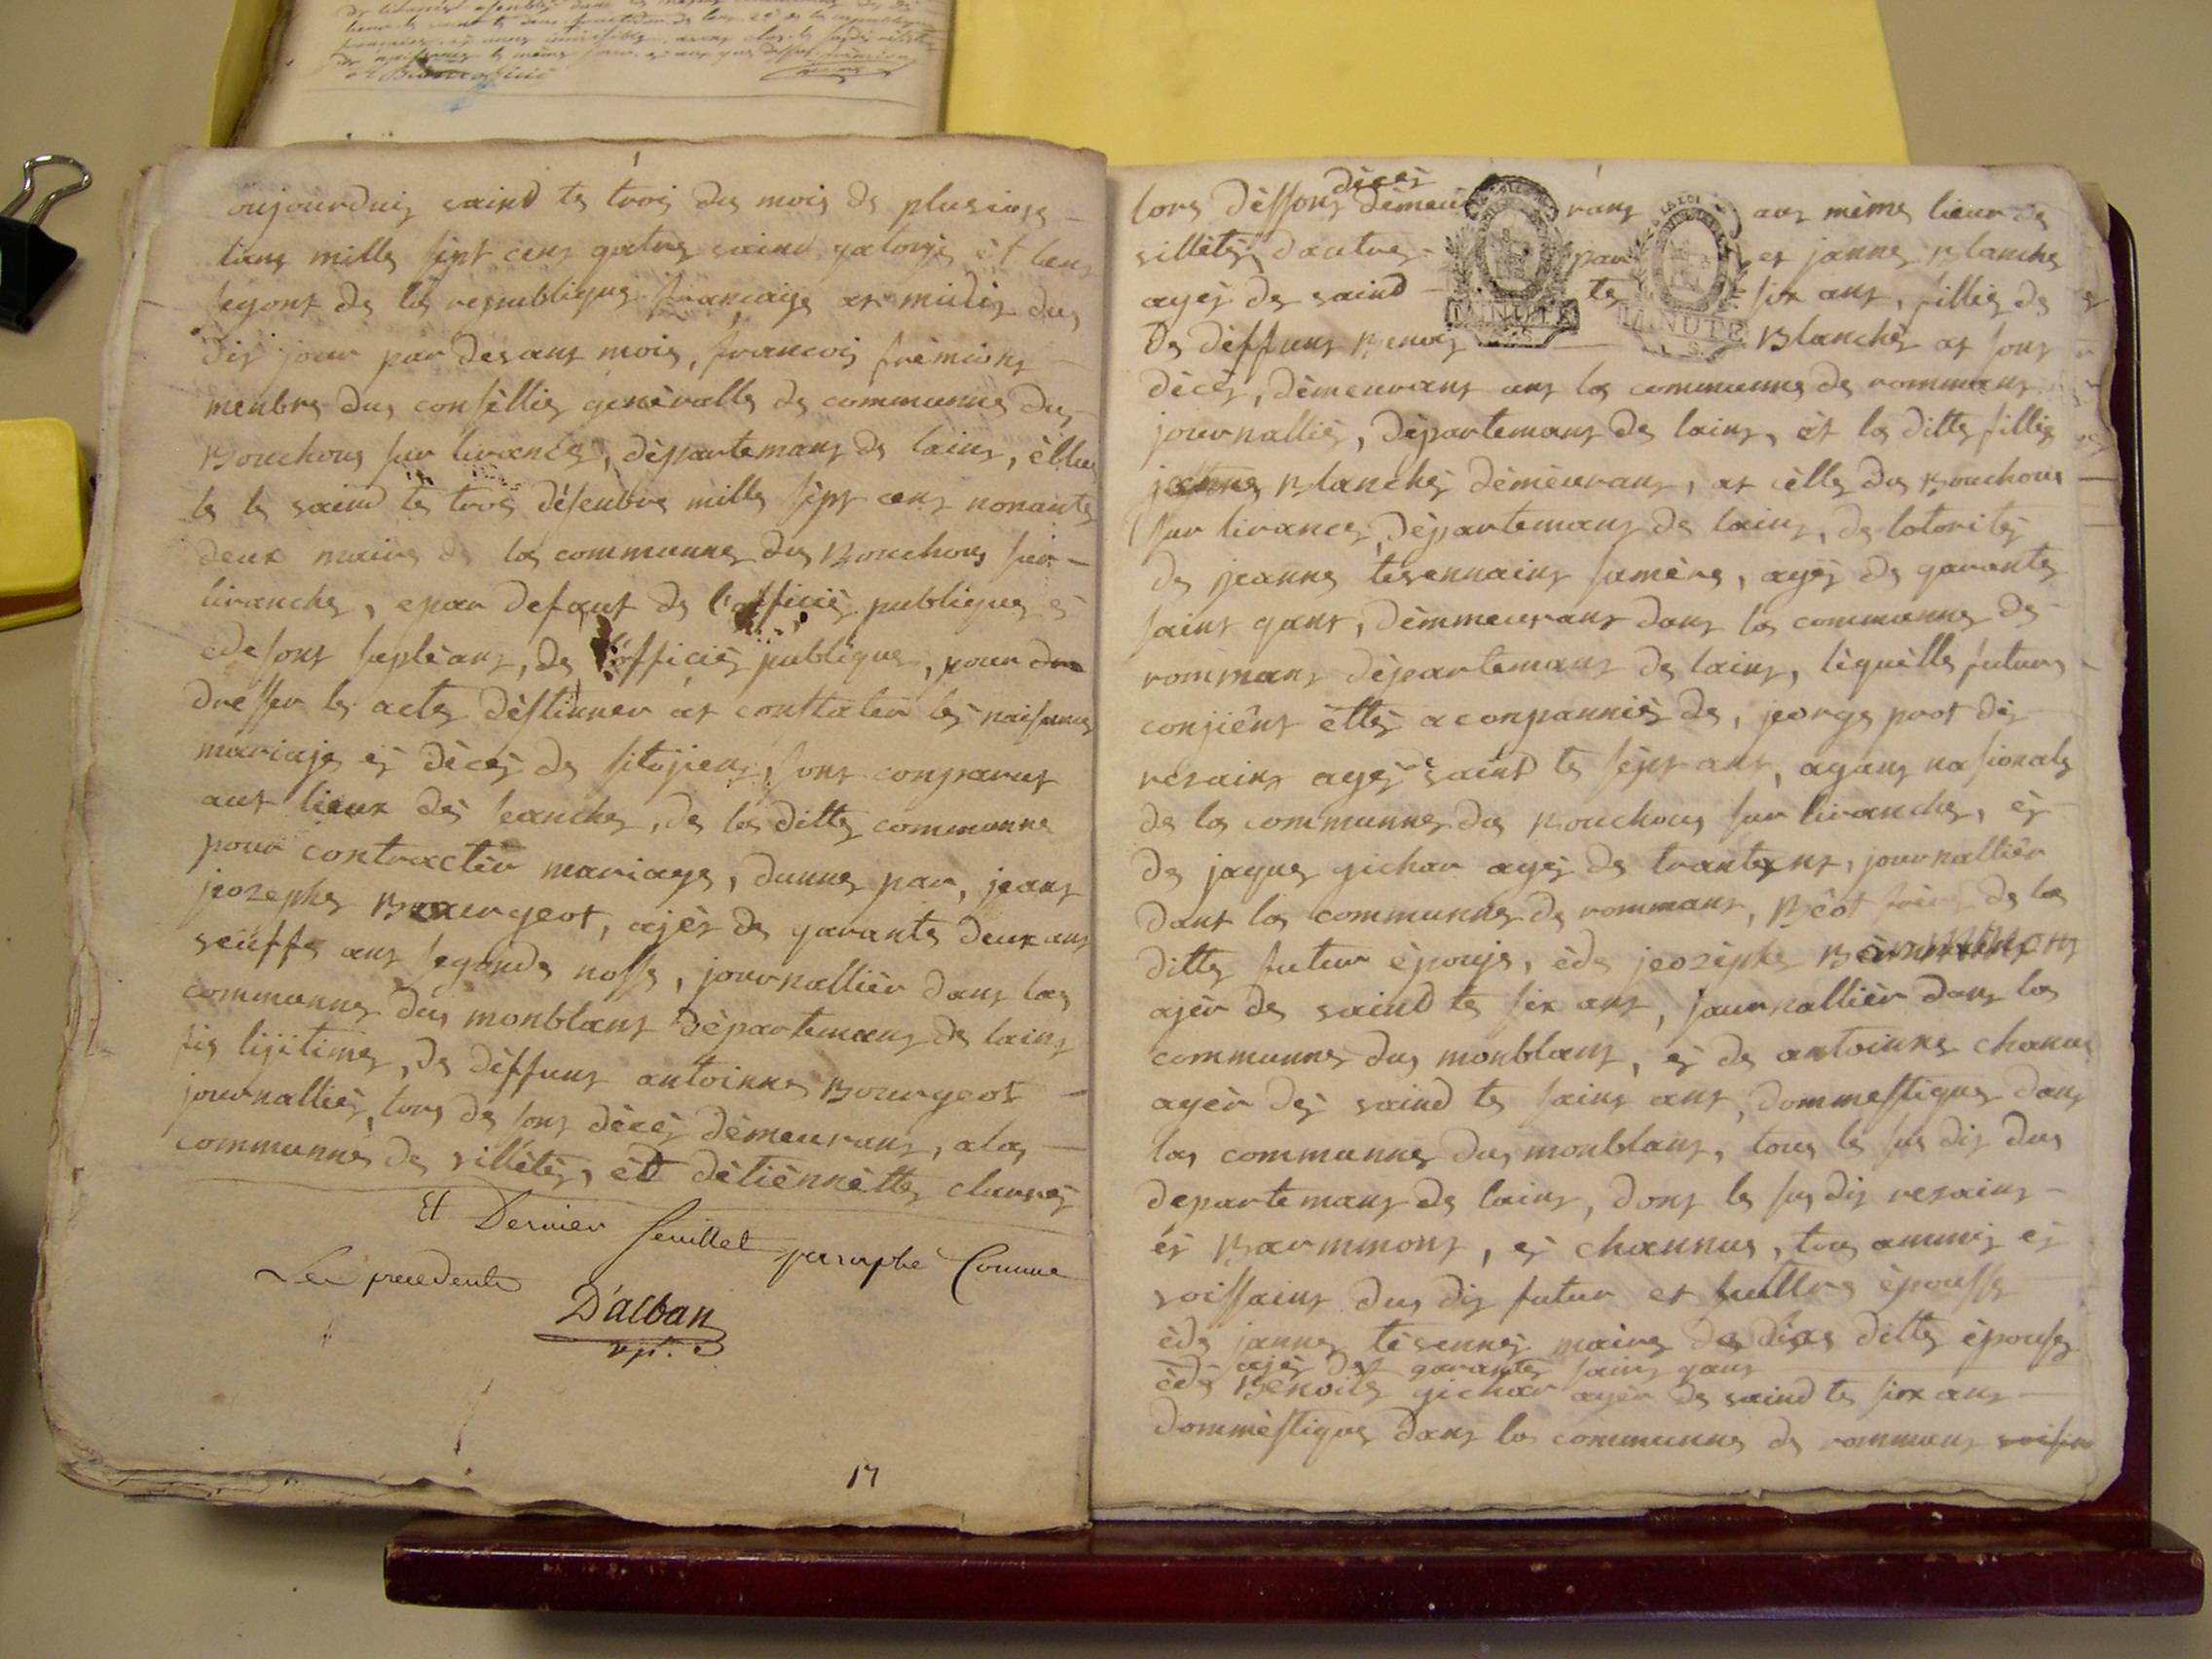 oujourduis vaind te trois du mois de plusiause
lans mille sept cens quatres vaind quatorse èt lens
segont de la republique française as midis dus
dis jour par devans mois, francois frèmions
menbre dus consèllies genèralle de communne dus
Bouchous sur lirance, dèpartemans de lains, èllus
le le vaind te trois désenbre mille sèpt cens nonante
deux maire de la communne dus Bouchous sur
liranche, epar defaut de l'officiè publique è
ede sons suplèans, de l'officiès publique, pour
dresser les actes dèstinner as constater les naisance
mariaje ès dècès de sitojiens, sons conparus
aus lieux des seanche, de la ditte communne
pour contracter mariage, dunne par, jeans
jeozephe Bourgeot, ajès de garante deux ans
veuffe ans segonde nosse, journallièr dans la
communne dus monblans dèpartemans de lains
fis lijitimes, de dèffuns antoinne Bourgeot
journalliès, lors de sons dècès dèmeurans, a la
communne de villètès, èt dètiènnètte charve
Et Dernier feuillet paraphé Comme
Les precedents
D'alban
17
lors dèssons dècès dèmeurans aus mème lieux de
villètès, dautre par et janne Blanche
agès de vaind te six ans, fillies de
De dèffuns Benois Blanchè as sons
dècès, dèmeurans ans la communne de rommans
journalliès, dèpartemans de lains, èt la ditte fillie
Blanchè dèmeurans, as cèlle dus Bouchous
sur lirance, dèpartemans de lains, de lotoritès
de jeanne tevennains samère, agès de garante
sains gans, dèmmeurans dans la communne de
rommans dèpartemans de lains, lèquèlle futurs
conjiêns ètte aconpanniès de, jeorge prot dis
verains agès vaind te sèpt ans, agans nasionale
de la communne dus Bouchous sur liranche, ès
de jaque gichar agès de trante ans, journallièr
dans la communne de rommans, Bèot frère de la
ditte futur èpouse, ède jeozèphe
ajèr de vaind te six ans, journallièr dans la
communne dus monblans, ès de antoinne chanus
agèr dès vaind te sains ans, dommestique dans
la communne dus monblans, tous le sus dis dus
departemans de lains, dons le sus dis verains
ès Barmmons, ès channus, tous ammis ès
voissains dus dis futur et futtre èpousse
ède janne tèvennès maire de ditte èpouse
ajès des garante sains gans
ède Benoite gichar agèr de vaind te six ans
dommèstique dans la communne de rommans
MINUTE
MINUTE